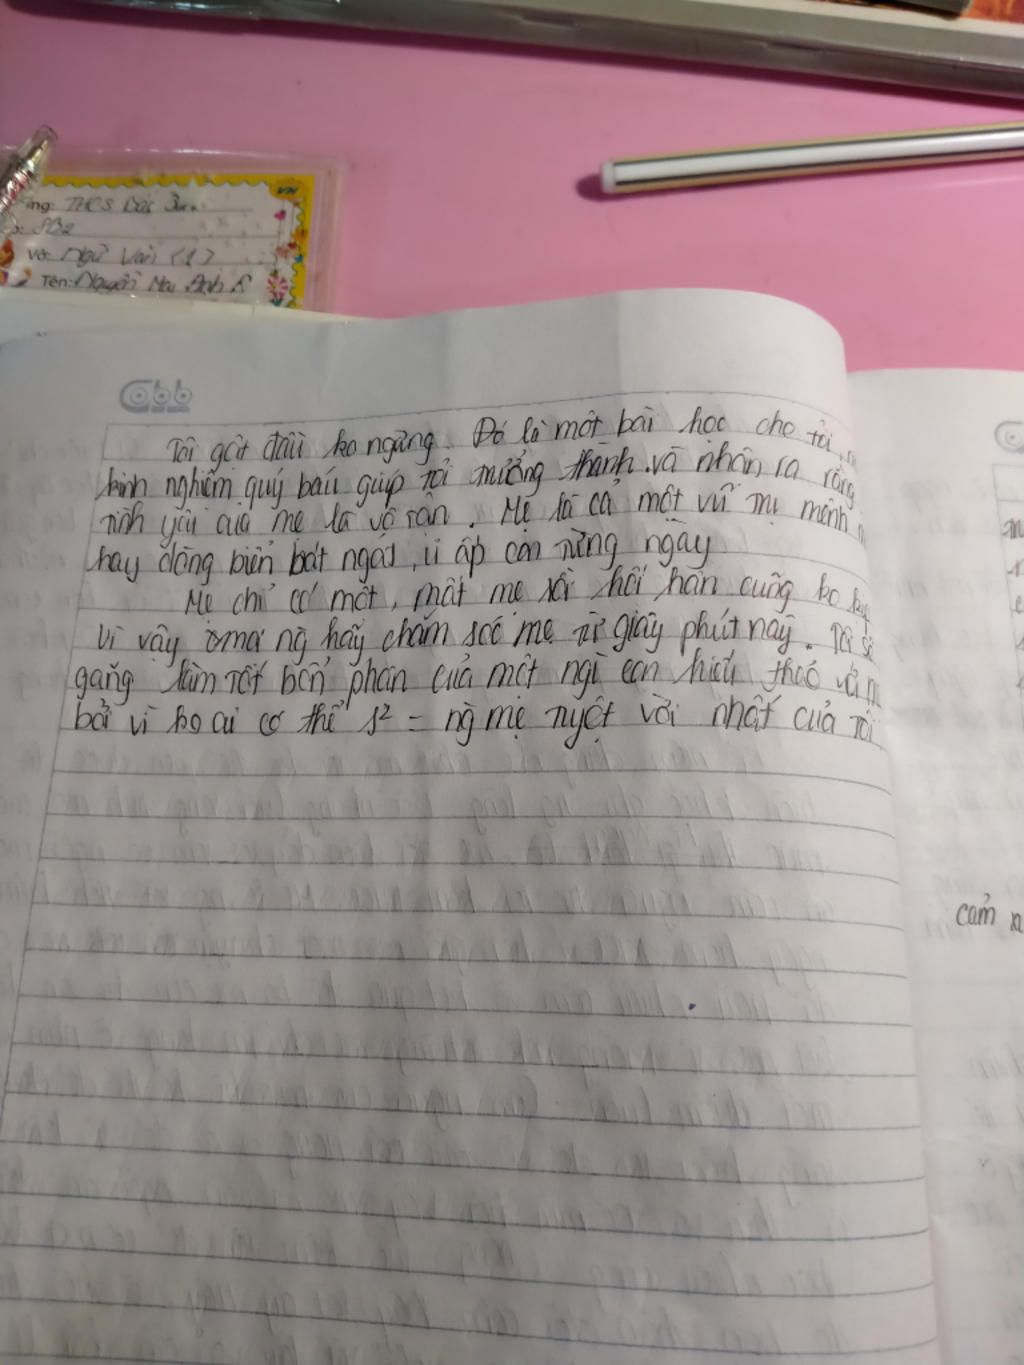 VN
THCS
8B2
Vở: Ngữ Văn (1)
Tên: Nguyễn Mai Anh
Cobb
Tôi gật đầu ko ngừng. Đó là một bài học cho tôi,
kinh nghiệm quý báu giúp tôi trưởng thành và nhận ra rằng
tình yêu của mẹ là vô tận. Mẹ là cả một vũ trụ mênh
hay dòng biển bát ngát, ủ ấp con từng ngày
Mẹ chỉ có một, mất mẹ rồi hối hận cũng ko kịp
Vì vậy hãy chăm sóc mẹ từ giây phút này. Tôi sẽ
gắng làm tốt bổn phận của một ngì con hiếu thảo
bởi vì ko ai có thể s² = ng mẹ tuyệt vời nhất của tôi
cảm